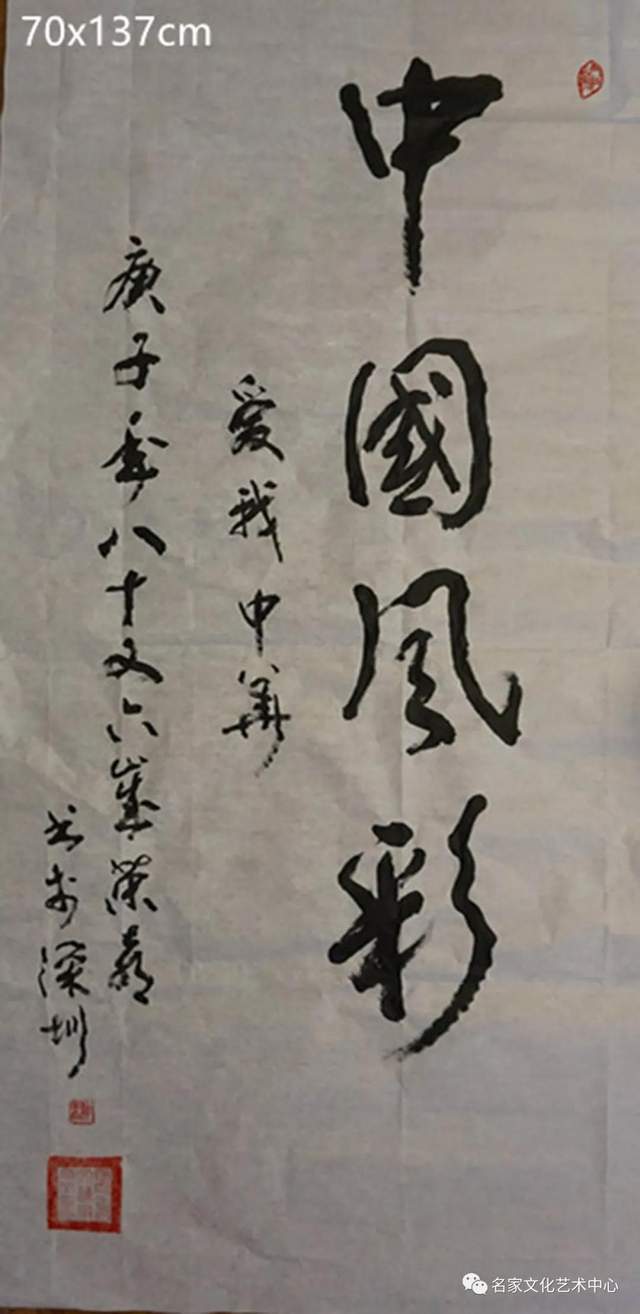 70x137cm
中國风彩
爱我中华
庚子年八十又六岁荣
书于深圳
名家文化艺术中心